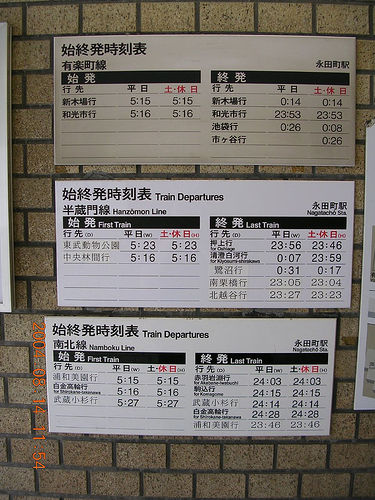 始終発時刻表
有楽町線
永田町駅
始発
行先 平日 土・休日
新木場行 5:15 5:15
和光市行 5:16 5:16
終発
行先 平日 土・休日
新木場行 0:14 0:14
和光市行 23:53 23:53
池袋行 0:26 0:08
市ヶ谷行 0:26
始終発時刻表 Train Departures
半蔵門線 Hanzōmon Line
永田町駅
Nagatachō Sta.
始発 First Train
行先(D) 平日(W) 土・休日(H)
東武動物公園 5:23 5:23
中央林間行 5:16 5:16
終発 Last Train
行先(D) 平日(W) 土・休日(H)
押上行 23:56 23:46
for Oshiage
清澄白河行 0:07 23:59
for Kiyosumi-shirakawa
鷺沼行 0:31 0:17
南栗橋行 23:05 23:04
北越谷行 23:27 23:23
始終発時刻表 Train Departures
南北線 Namboku Line
永田町駅
Nagatachō Sta.
始発 First Train
行先(D) 平日(W) 土・休日(H)
浦和美園行 5:15 5:15
白金高輪行 5:16 5:16
for Shirokane-takanawa
武蔵小杉行 5:27 5:27
終発 Last Train
行先(D) 平日(W) 土・休日(H)
赤羽岩淵行 24:03 24:03
for Akabane-iwabuchi
駒込行 24:15 24:15
for Komagome
武蔵小杉行 24:14 24:14
白金高輪行 24:28 24:28
for Shirokane-takanawa
浦和美園行 23:46 23:46